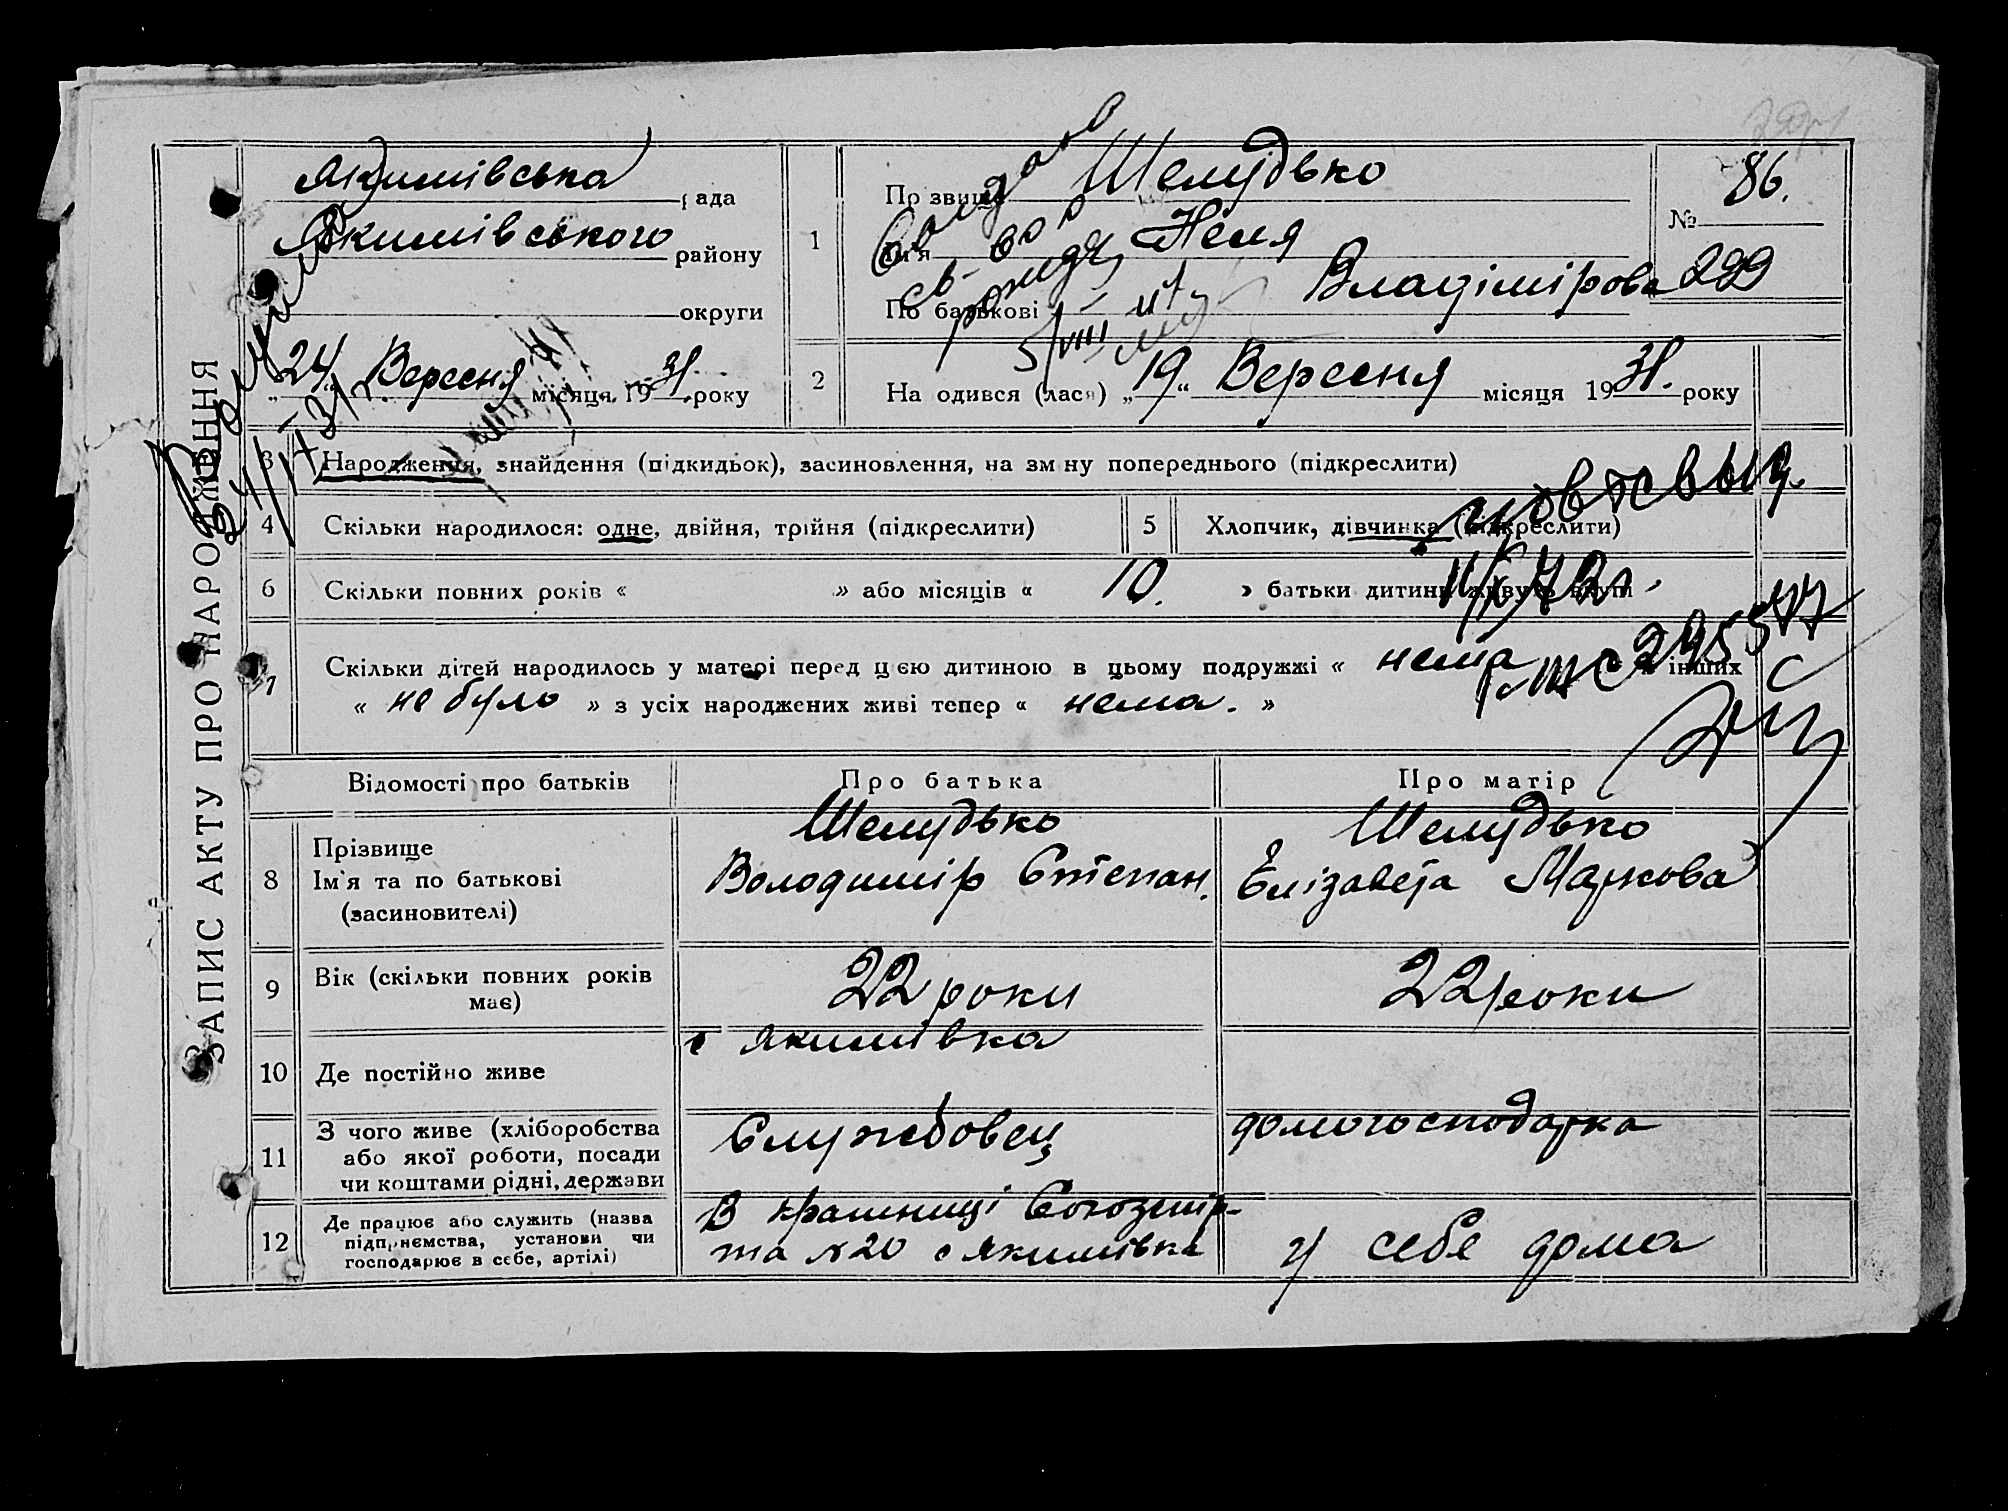 ЗАПИС АКТУ ПРО НАРОДЖЕННЯ
Якимівська рада
Якимівського району
округи
„24" Вересня місяця 1931. року
1
Прізвище Шелудько
Ім'я Неля
По батькові Владімірова
№ 86.
299
2
На одився (лася) „19" Вересня місяця 1931. року
3 Народження, знайдення (підкидьок), засиновлення, на зм ну попереднього (підкреслити)
4 Скільки народилося: одне, двійня, трійня (підкреслити)
5 Хлопчик, дівчинка (підкреслити)
6 Скільки повних років « » або місяців « 10. » батьки дитини живуть вкупі
7 Скільки дітей народилось у матері перед цією дитиною в цьому подружжі « нема інших
« не було » з усіх народжених живі тепер « нема. »
Відомості про батьків Про батька Про матір
8 Прізвище
Ім'я та по батькові
(засиновителі)
Шелудько
Володимір Степан.
Шелудько
Єлізавета Маркова
9 Вік (скільки повних років
має)
22 роки
22 роки
10 Де постійно живе
с Якимівка
11 З чого живе (хліборобства
або якої роботи, посади
чи коштами рідні, держави
Службовец
домогосподарка
12 Де працює або служить (назва
підприємства, установи чи
господарює в себе, артілі)
В крамниці
та №20 с Якимівка
у себе дома